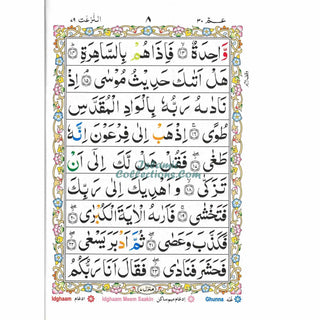 عـمّ ٣٠ ٨ النّٰزعٰت ٧٩
وَّاحِدَةٌ ۙ﴿۱۳﴾ فَاِذَا هُمْ بِالسَّاهِرَةِ ؕ﴿۱۴﴾
هَلْ اَتٰىكَ حَدِيْثُ مُوْسٰى ۘ﴿۱۵﴾ اِذْ
نَادٰىهُ رَبُّهٗ بِالْوَادِ الْمُقَدَّسِ
طُوًى ۚ﴿۱۶﴾ اِذْهَبْ اِلٰى فِرْعَوْنَ اِنَّهٗ
طَغٰى ۖ﴿۱۷﴾ فَقُلْ هَلْ لَّكَ اِلٰٓى اَنْ
تَزَكّٰى ۙ﴿۱۸﴾ وَاَهْدِيَكَ اِلٰى رَبِّكَ
فَتَخْشٰى ۚ﴿۱۹﴾ فَاَرٰىهُ الْاٰيَةَ الْكُبْرٰى ۖ﴿۲۰﴾
فَكَذَّبَ وَعَصٰى ۖ﴿۲۱﴾ ثُمَّ اَدْبَرَ يَسْعٰى ۖ﴿۲۲﴾
فَحَشَرَ فَنَادٰى ۖ﴿۲۳﴾ فَقَالَ اَنَا رَبُّكُمُ
Collections.com
Idghaam ادغام Idghaam Meem Saakin ادغام میم ساکن Ghunna غنہ